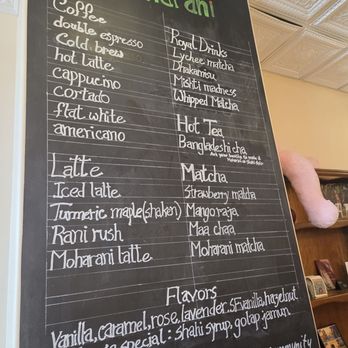 Coffee
double espresso
Cold brew
hot latte
cappucino
cortado
flat white
americano
Latte
Iced latte
Turmeric maple (shaken)
Rani rush
Moharani latte
Royal Drinks
Lychee matcha
Dhakamisu
Mishti madness
Whipped Matcha
Hot Tea
Bangladeshi cha
Matcha
Strawberry matcha
Mango raja
Maa chara
Moharani matcha
Flavors
Vanilla, caramel, rose, lavender, SF vanilla, hazelnut
special: shahi syrup, golap jamun